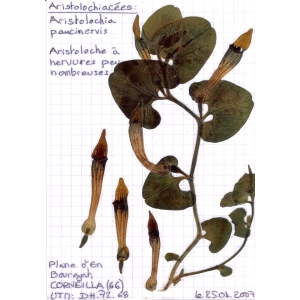 Aristolochiacées:
Aristolochia
paucinervis
Aristoloche à
nervures peu
nombreuses
Plane d'En
Bourgat,
CORNEILLA (66)
UTM: DH.72.68
le 25.04.2007